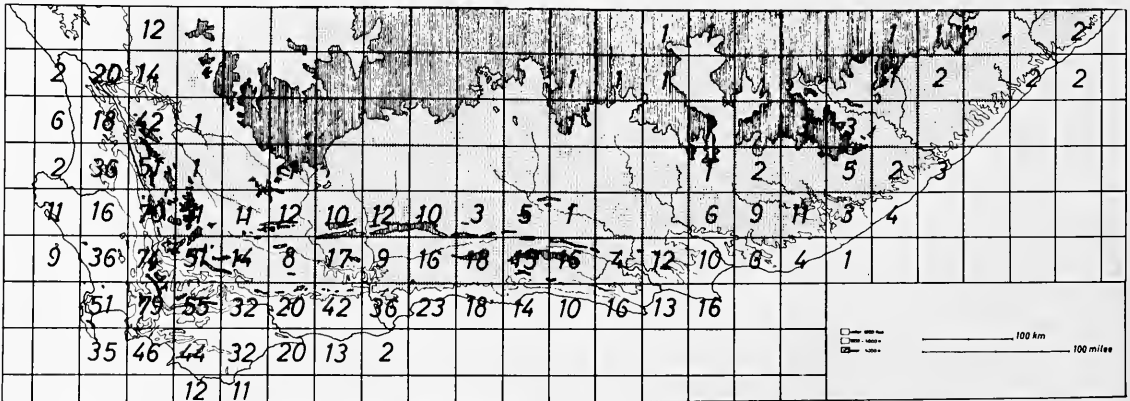 12 1 1 1 1 2
2 20 14 1 1 1 1 2 2 2
6 18 42 1 3
2 36 51 1 1 2 5 2 3
11 16 11 12 10 12 10 3 5 1 6 9 11 3 4
9 36 74 51 14 8 17 9 16 18 15 16 4 12 10 6 4 1
51 79 55 32 20 42 36 23 18 14 10 16 13 16
100 km
35 46 44 32 20 13 2
100 miles
12 11